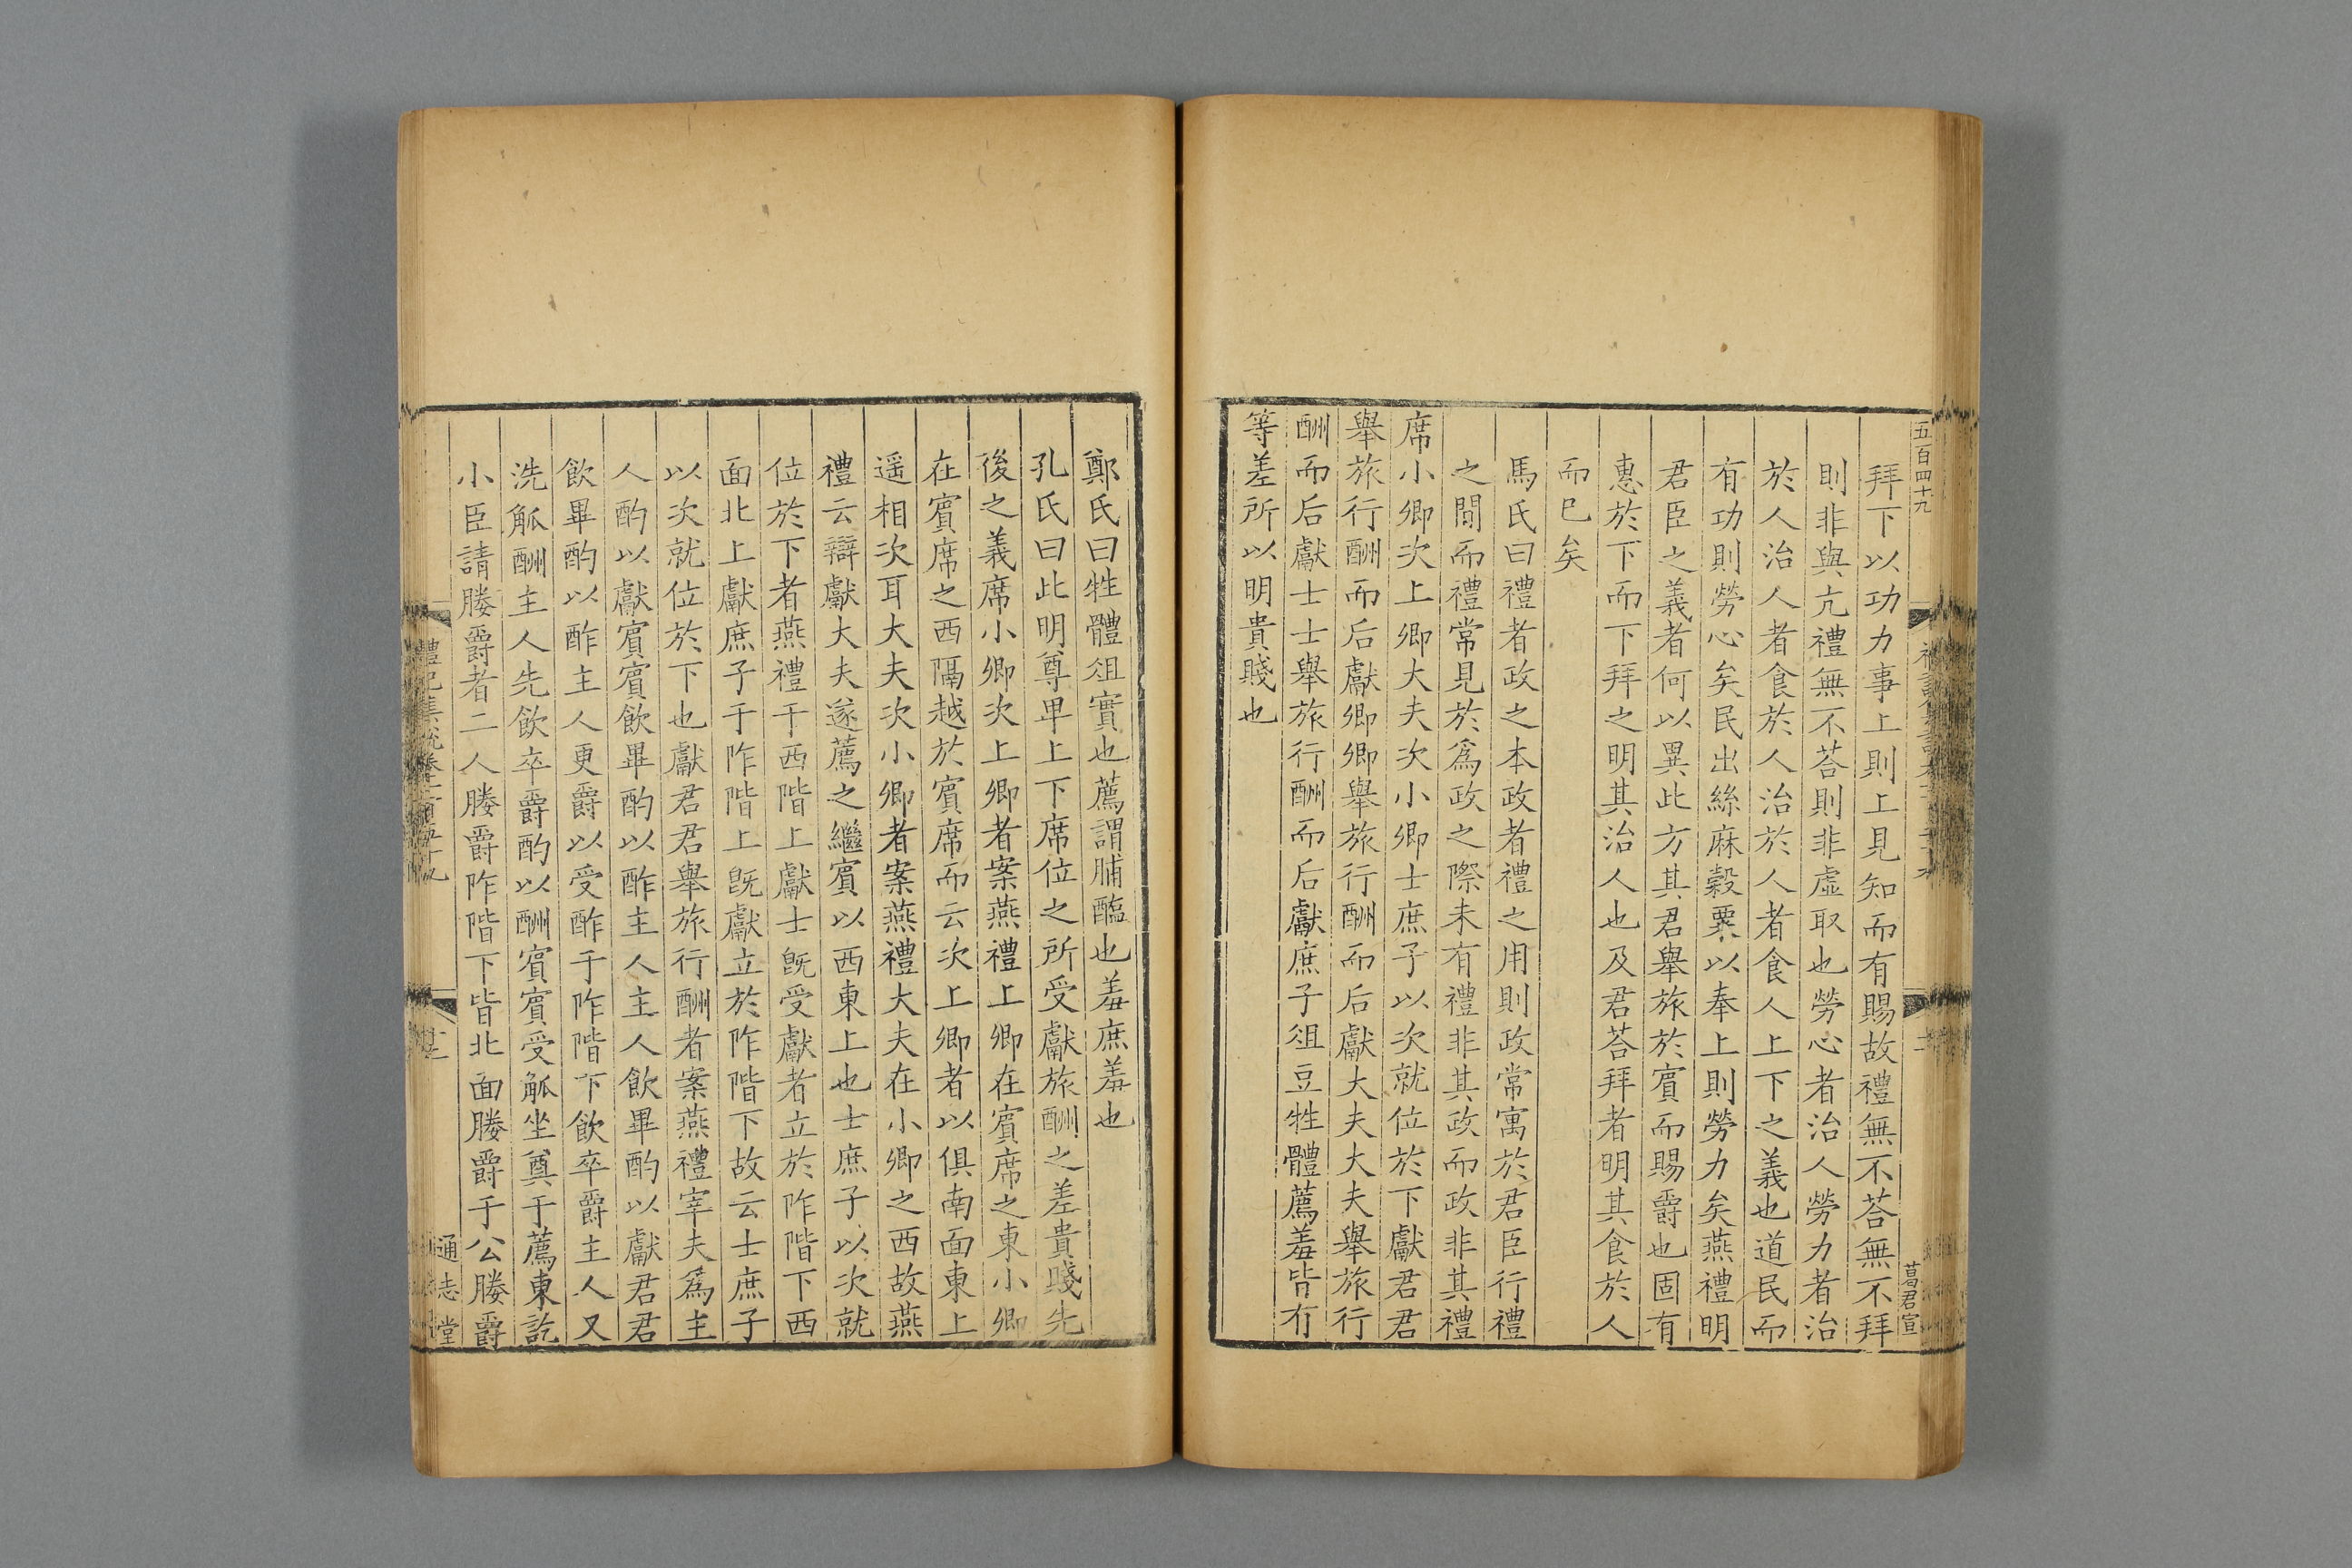 五百四十九
葛君宣
拜下以功力事上則上見知而有賜故禮無不荅無不拜
則非與亢禮無不荅則非虛取也勞心者治人勞力者治
於人治人者食於人治於人者食人上下之義也道民而
有功則勞心矣民出絲麻穀粟以奉上則勞力矣燕禮明
君臣之義者何以異此方其君舉旅於賓而賜爵也固有
惠於下而下拜之明其治人也及君荅拜者明其食於人
而已矣
馬氏曰禮者政之本政者禮之用則政常寓於君臣行禮
之間而禮常見於爲政之際未有禮非其政而政非其禮
席小卿次上卿大夫次小卿士庶子以次就位於下獻君君
舉旅行酬而后獻卿卿舉旅行酬而后獻大夫大夫舉旅行
酬而后獻士士舉旅行酬而后獻庶子俎豆牲體薦羞皆有
等差所以明貴賤也
鄭氏曰牲體俎實也薦謂脯醢也羞庶羞也
孔氏曰此明尊卑上下席位之所受獻旅酬之差貴賤先
後之義席小卿次上卿者案燕禮上卿在賓席之東小卿
在賓席之西隔越於賓席而云次上卿者以俱南面東上
遥相次耳大夫次小卿者案燕禮大夫在小卿之西故燕
禮云辯獻大夫遂薦之繼賓以西東上也士庶子以次就
位於下者燕禮于西階上獻士旣受獻者立於阼階下西
面北上獻庶子于阼階上旣獻立於阼階下故云士庶子
以次就位於下也獻君君舉旅行酬者案燕禮宰夫爲主
人酌以獻賓賓飲畢酌以酢主人主人飲畢酌以獻君君
飲畢酌以酢主人更爵以受酢于阼階下飲卒爵主人又
洗觚酬主人先飲卒爵酌以酬賓賓受觚坐奠于薦東訖
小臣請媵爵者二人媵爵阼階下皆北面媵爵于公媵爵
禮記集說卷一百五十九
通志堂